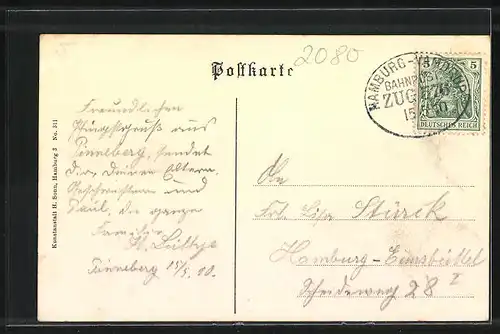 2080
Postkarte
HAMBURG-
BAHNPOST
ZUG
15
5
5
DEUTSCHES REICH
Freundlichen
Pfingstgruß aus
Pinneberg, sendet
Dir, Deinen Eltern,
Geschwistern und
Paul, die ganze
Familie
Pinneberg 15/5. 10.
An
Frl. Lisa Stürck
Hamburg-Eimsbüttel
Scheideweg 28 I
Kunstanstalt H. Sonn, Hamburg 3 No. 311